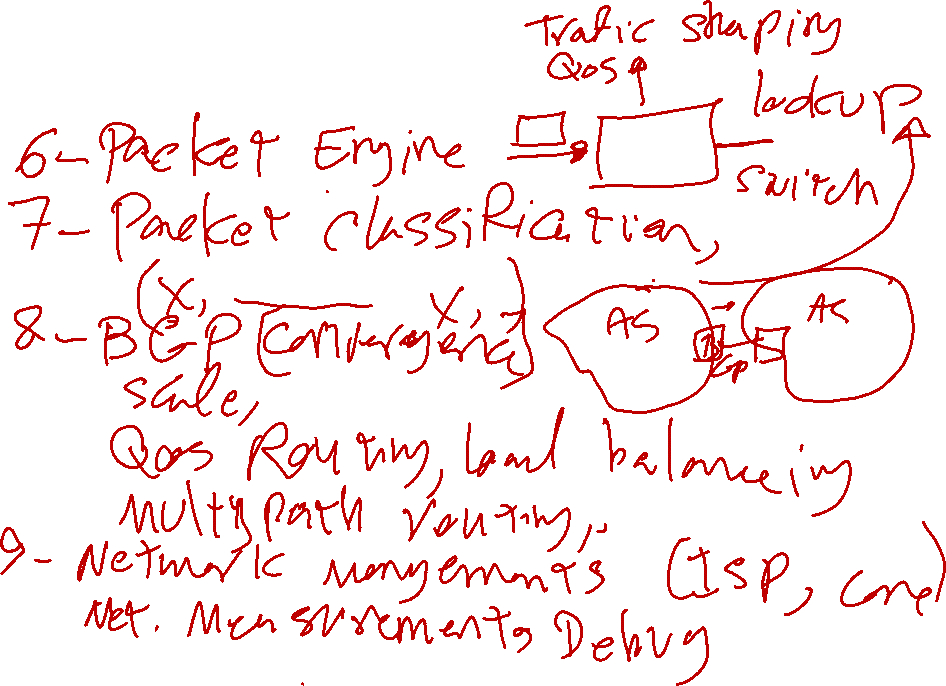 Trafic shaping
QoS
lookup
6- Packet Engine
switch
7- Packet classification,
(X, X, )
8- BGP (convergence)
AS
AS
scale,
QoS Routing, load balanceing
Multy path routing,.
9- Network mangements (ISP, core)
Net. Measurements Debug